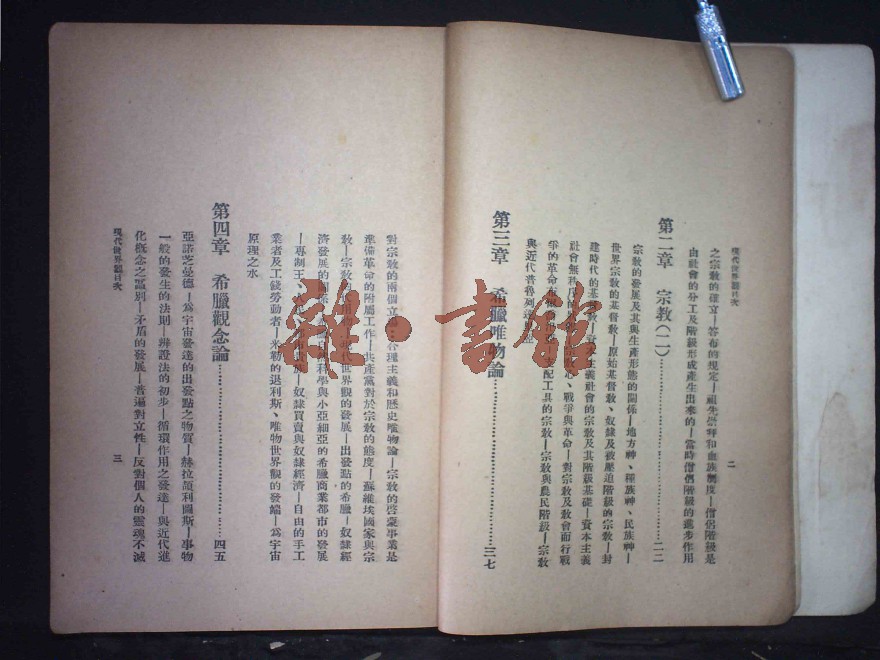 現代世界觀目次
二
之宗敎的確立—答布的規定—祖先崇拜和血族制度—僧侶階級是
由社會的分工及階級形成產生出來的—當時僧侶階級的進步作用
第二章 宗敎(二)……二二
宗敎的發展及其與生產形態的關係—地方神、種族神、民族神—
世界宗敎的基督敎—原始基督敎、奴隷及被壓迫階級的宗敎—封
建時代的基督敎—資本主義社會的宗敎及其階級基礎—資本主義
社會無秩序 心、戰爭與革命—對宗敎及敎會而行戰
爭的革命 配工具的宗敎—宗敎與農民階級—宗敎
與近代普魯列
第三章 希臘唯物論……三七
對宗敎的兩個立場 各種主義和歷史唯物論—宗敎的啓蒙事業是
準備革命的附屬工作—共產黨對於宗敎的態度—蘇維埃國家與宗
敎—宗敎 現代世界觀的發展—出發點的希臘—奴隷經
濟發展的關係 科學與小亞細亞的希臘商業都市的發展
—專制王 奴隷買賣與奴隷經濟—自由的手工
業者及工錢勞動者—米勒的退利斯、唯物世界觀的發端—爲宇宙
原理之水
第四章 希臘觀念論……四五
亞諾芝曼德—爲宇宙發達的出發點之物質—赫拉頡利圖斯—事物
一般的發生的法則—辨證法的初步—循環作用之發達—與近代進
化概念之區別—矛盾的發展—普遍對立性—反對個人的靈魂不滅
現代世界觀目次
三
雜·書館